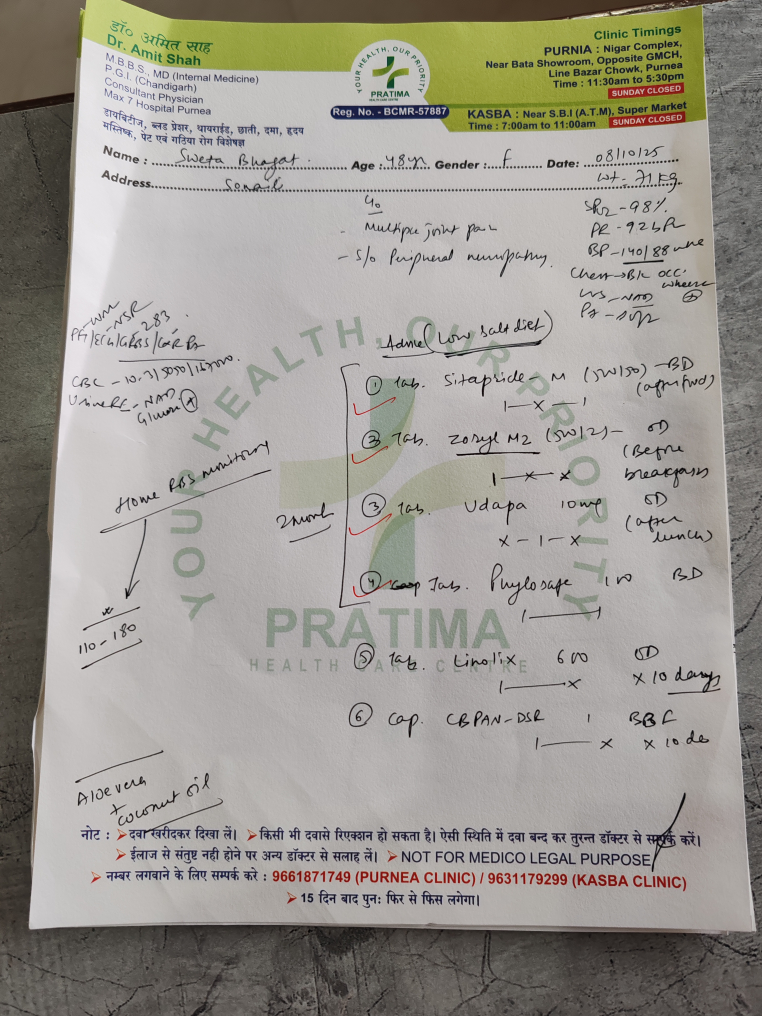 डॉ० अमित साह
Dr. Amit Shah
M.B.B.S., MD (Internal Medicine)
P.G.I. (Chandigarh)
Consultant Physician
Max 7 Hospital Purnea
डायबिटीज, ब्लड प्रेशर, थायराईड, छाती, दमा, हृदय
मस्तिष्क, पेट एवं गठिया रोग विशेषज्ञ
YOUR HEALTH, OUR PRIORITY
PRATIMA
HEALTH CARE CENTRE
Reg. No. - BCMR-57887
Clinic Timings
PURNIA : Nigar Complex,
Near Bata Showroom, Opposite GMCH,
Line Bazar Chowk, Purnea
Time : 11:30am to 5:30pm
SUNDAY CLOSED
KASBA : Near S.B.I (A.T.M), Super Market
Time : 7:00am to 11:00am SUNDAY CLOSED
Name : Sweta Bhagat Age : 48yr Gender : F Date: 08/10/25
Address
Wt - 71 kg
c/o
- Multiple joint pain
- S/o Peripheral neuropathy.
SPO2 - 98%
PR - 92
BP - 140/88
Chest → B/L occ. wheeze
CVS - NAD
283
CBC - 10.3/5050/
Urine RE - NAD
Home RBS monitoring
110 - 180
Advice (Low salt diet)
2 month
① Tab. Sitapride - M (50/50) - BD
(after food)
1 - x - 1
② Tab. Zoryl M2 (50/2) - OD
(Before breakfast)
1 - x - x
③ Tab. Udapa 10mg OD
(after lunch)
x - 1 - x
④ Tab. Phylosafe 100 BD
1 - 1
⑤ Tab. Linolix 600 OD
1 - x x 10 days
⑥ Cap. CBPAN-DSR 1 BBF
1 - x x 10 da
Aloevera
+
coconut oil
YOUR HEALTH, OUR PRIORITY
PRATIMA
HEALTH CARE CENTRE
नोट : ➤ दवा खरीदकर दिखा लें। ➤ किसी भी दवासे रिएक्शन हो सकता है। ऐसी स्थिति में दवा बन्द कर तुरन्त डॉक्टर से सम्पर्क करें।
➤ ईलाज से संतुष्ट नही होने पर अन्य डॉक्टर से सलाह लें। ➤ NOT FOR MEDICO LEGAL PURPOSE
➤ नम्बर लगवाने के लिए सम्पर्क करे : 9661871749 (PURNEA CLINIC) / 9631179299 (KASBA CLINIC)
➤ 15 दिन बाद पुनः फिर से फिस लगेगा।